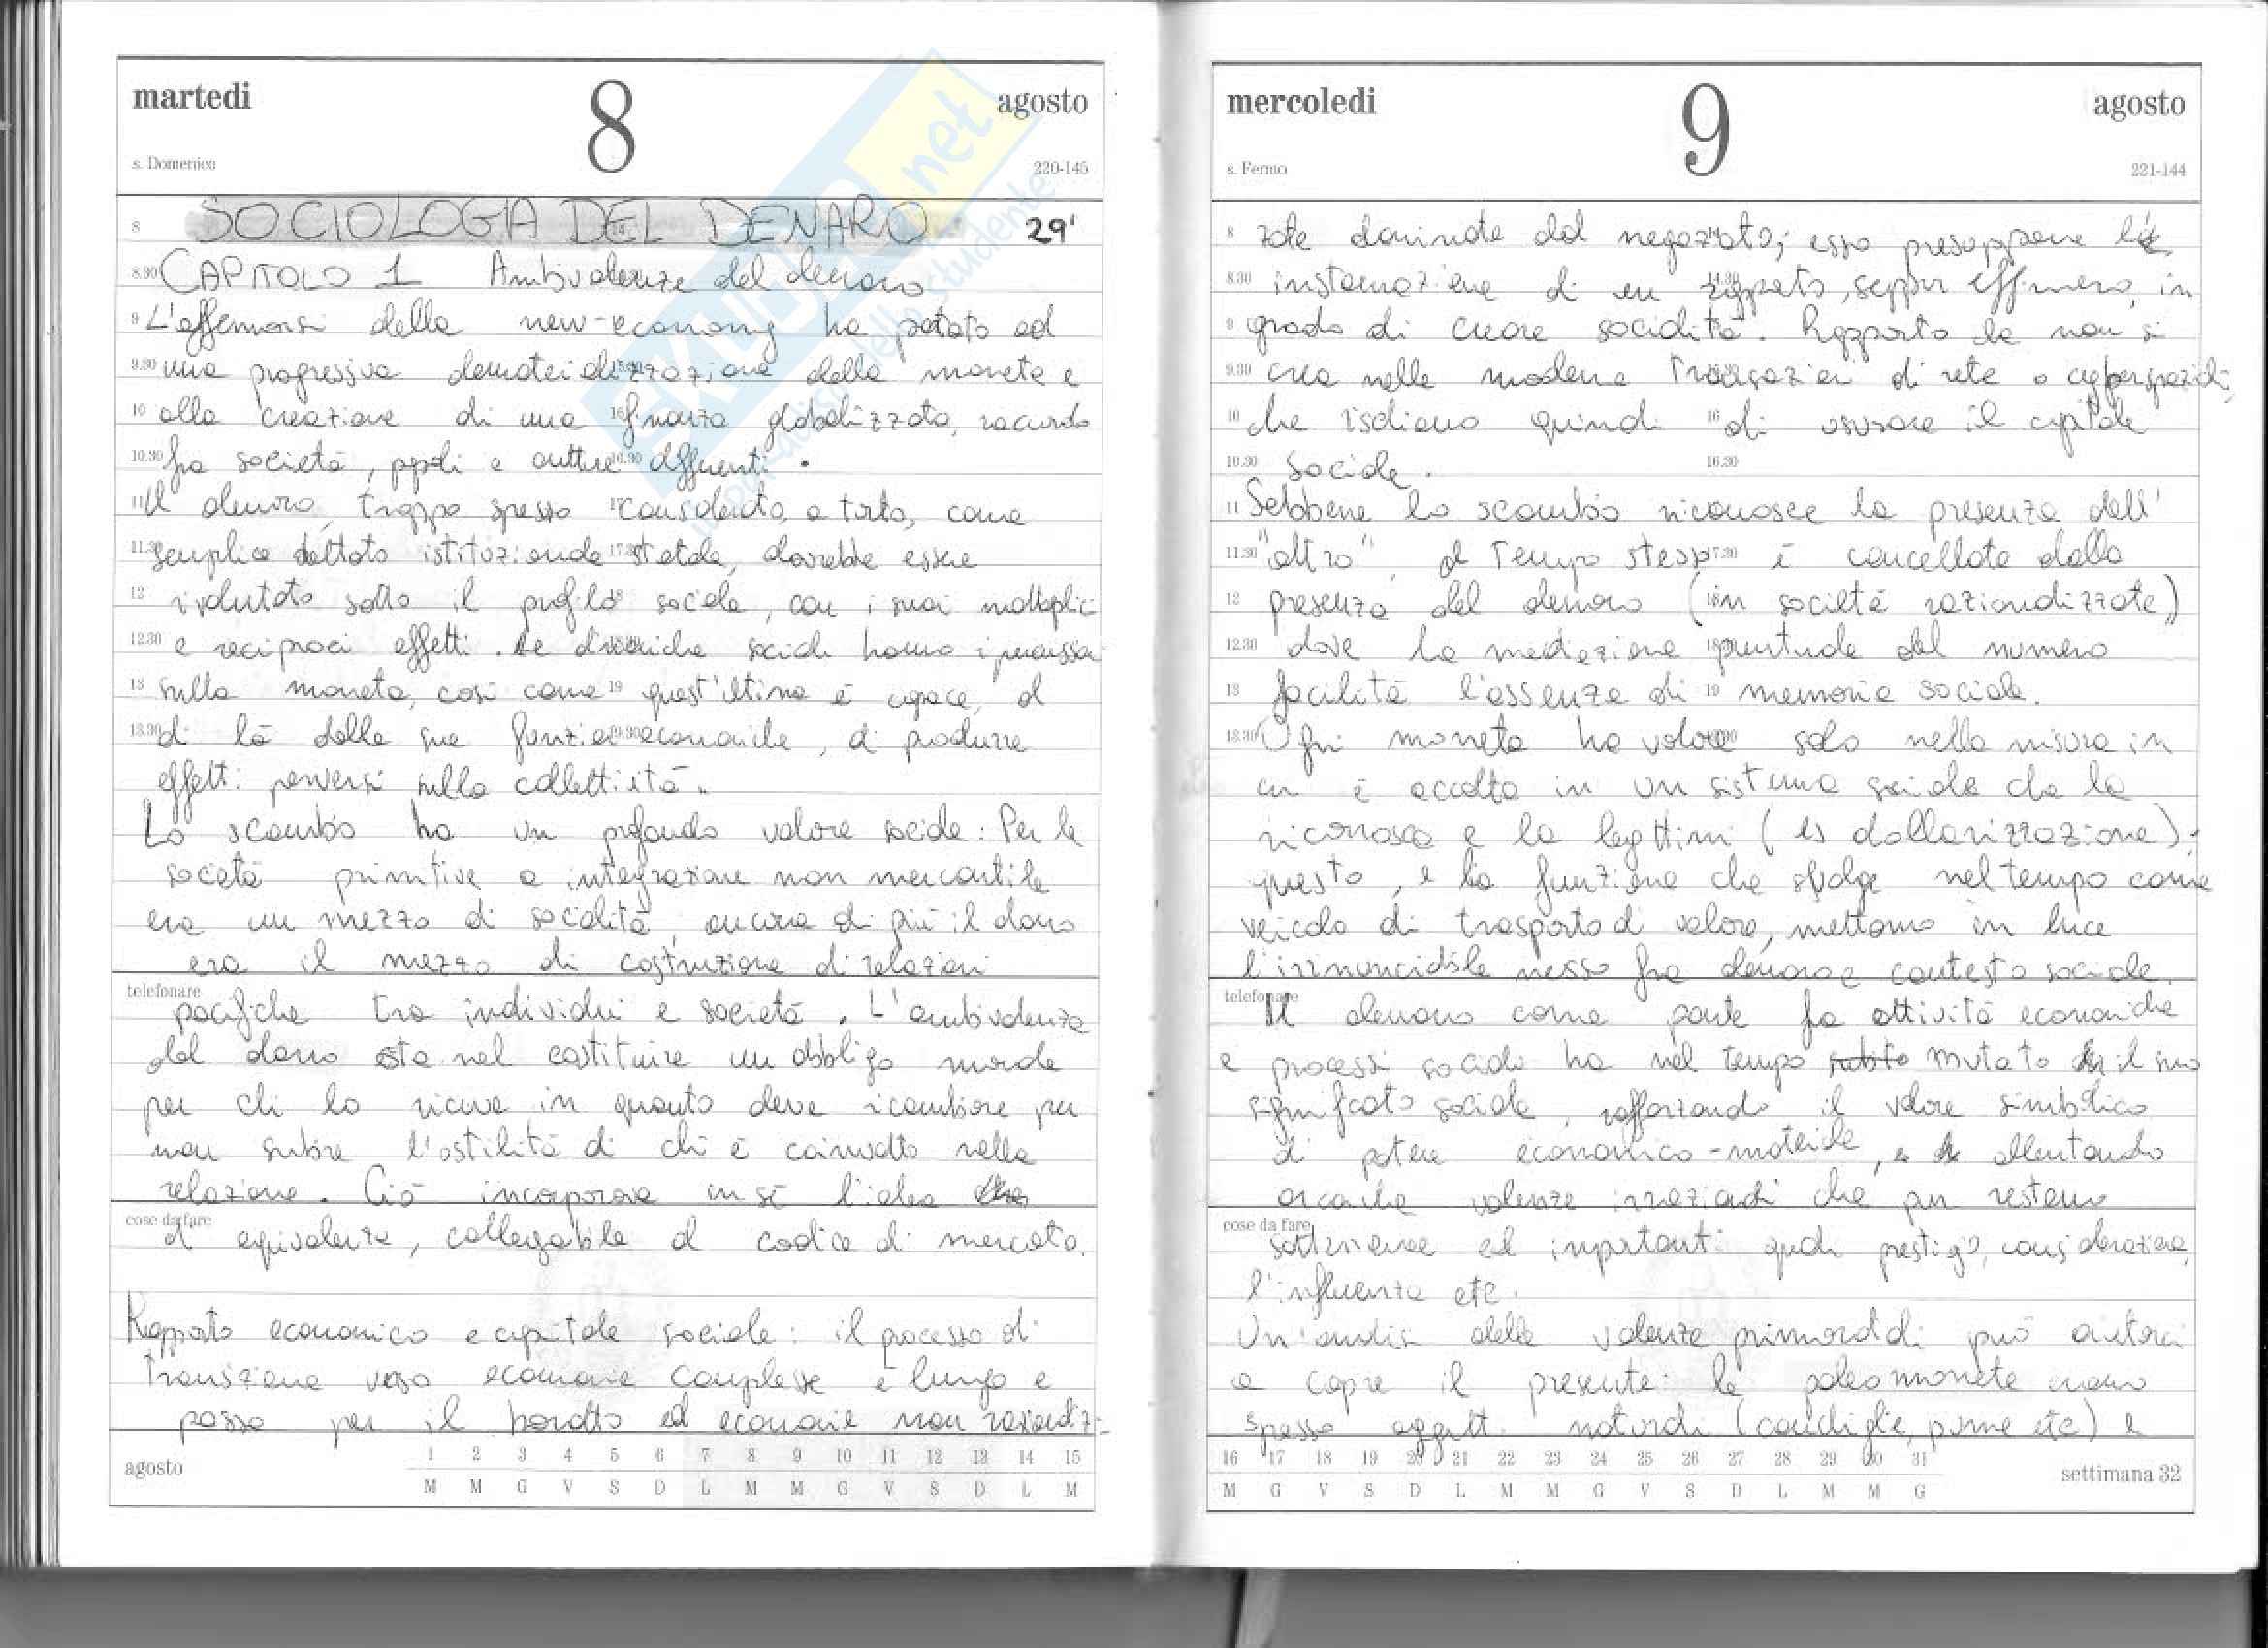 martedi 8 agosto
s. Domenico 220-145
SOCIOLOGIA DEL DENARO 29'
CAPITOLO 1 Ambivalenze del denaro
L'affermarsi della new-economy ha portato ad
una progressiva dematerializzazione della moneta e
alla creazione di una finanza globalizzata, raccordo
fra società, popoli e culture differenti.
Il denaro, troppo spesso considerato, a torto, come
semplice dettato istituzionale statale, dovrebbe essere
rivalutato sotto il profilo sociale, con i suoi molteplici
e reciproci effetti. Le dinamiche sociali hanno ripercussioni
sulla moneta, così come quest'ultima è capace, al
di là delle sue funzioni economiche, di produrre
effetti perversi sulla collettività.
Lo scambio ha un profondo valore sociale: Per le
società primitive a integrazione non mercantile
era un mezzo di socialità, ancora di più il dono
era il mezzo di costruzione di relazioni
telefonare
pacifiche tra individui e società. L'ambivalenza
del dono sta nel costituire un obbligo morale
per chi lo riceve in quanto deve ricambiare per
non subire l'ostilità di chi è coinvolto nella
relazione. Ciò incorporava in sé l'idea
cose da fare
di equivalenza, collegabile al codice di mercato.
Rapporto economico e capitale sociale: il processo di
transizione verso economie complesse è lungo e
passa per il baratto ed economie non razionaliz-
agosto 1 2 3 4 5 6 7 8 9 10 11 12 13 14 15
M M G V S D L M M G V S D L M
mercoledi 9 agosto
s. Fermo 221-144
zate dominate dal negoziato; esso presuppone l'
instaurazione di un rapporto, seppur effimero, in
grado di creare socialità. Rapporto che non si
crea nelle moderne transazioni di rete o cyberspaziali,
che rischiano quindi di usurare il capitale
sociale.
Sebbene lo scambio riconosce la presenza dell'
"altro", al tempo stesso è cancellata dalla
presenza del denaro (in società razionalizzate)
dove la mediazione puntuale del numero
facilita l'assenza di memoria sociale.
Ogni moneta ha valore solo nella misura in
cui è accolta in un sistema sociale che la
riconosca e la legittimi (es dollarizzazione);
questo, e la funzione che svolge nel tempo come
veicolo di trasporto di valore, mettono in luce
l'irrinunciabile nesso fra denaro e contesto sociale.
telefonare
Il denaro come ponte fra attività economiche
e processi sociali ha nel tempo mutato il suo
significato sociale, rafforzando il valore simbolico
di potere economico-materiale, e allentando
arcaiche valenze irrazionali che pur restano
cose da fare
sotterranee ed importanti quali prestigio, considerazione,
l'influenza etc.
Un'analisi delle valenze primordiali può aiutarci
a capire il presente: le paleomonete erano
spesso oggetti naturali (conchiglie, piume etc) e
16 17 18 19 20 21 22 23 24 25 26 27 28 29 30 31
M G V S D L M M G V S D L M M G
settimana 32
SKUOLA.net
il paradiso dello studente